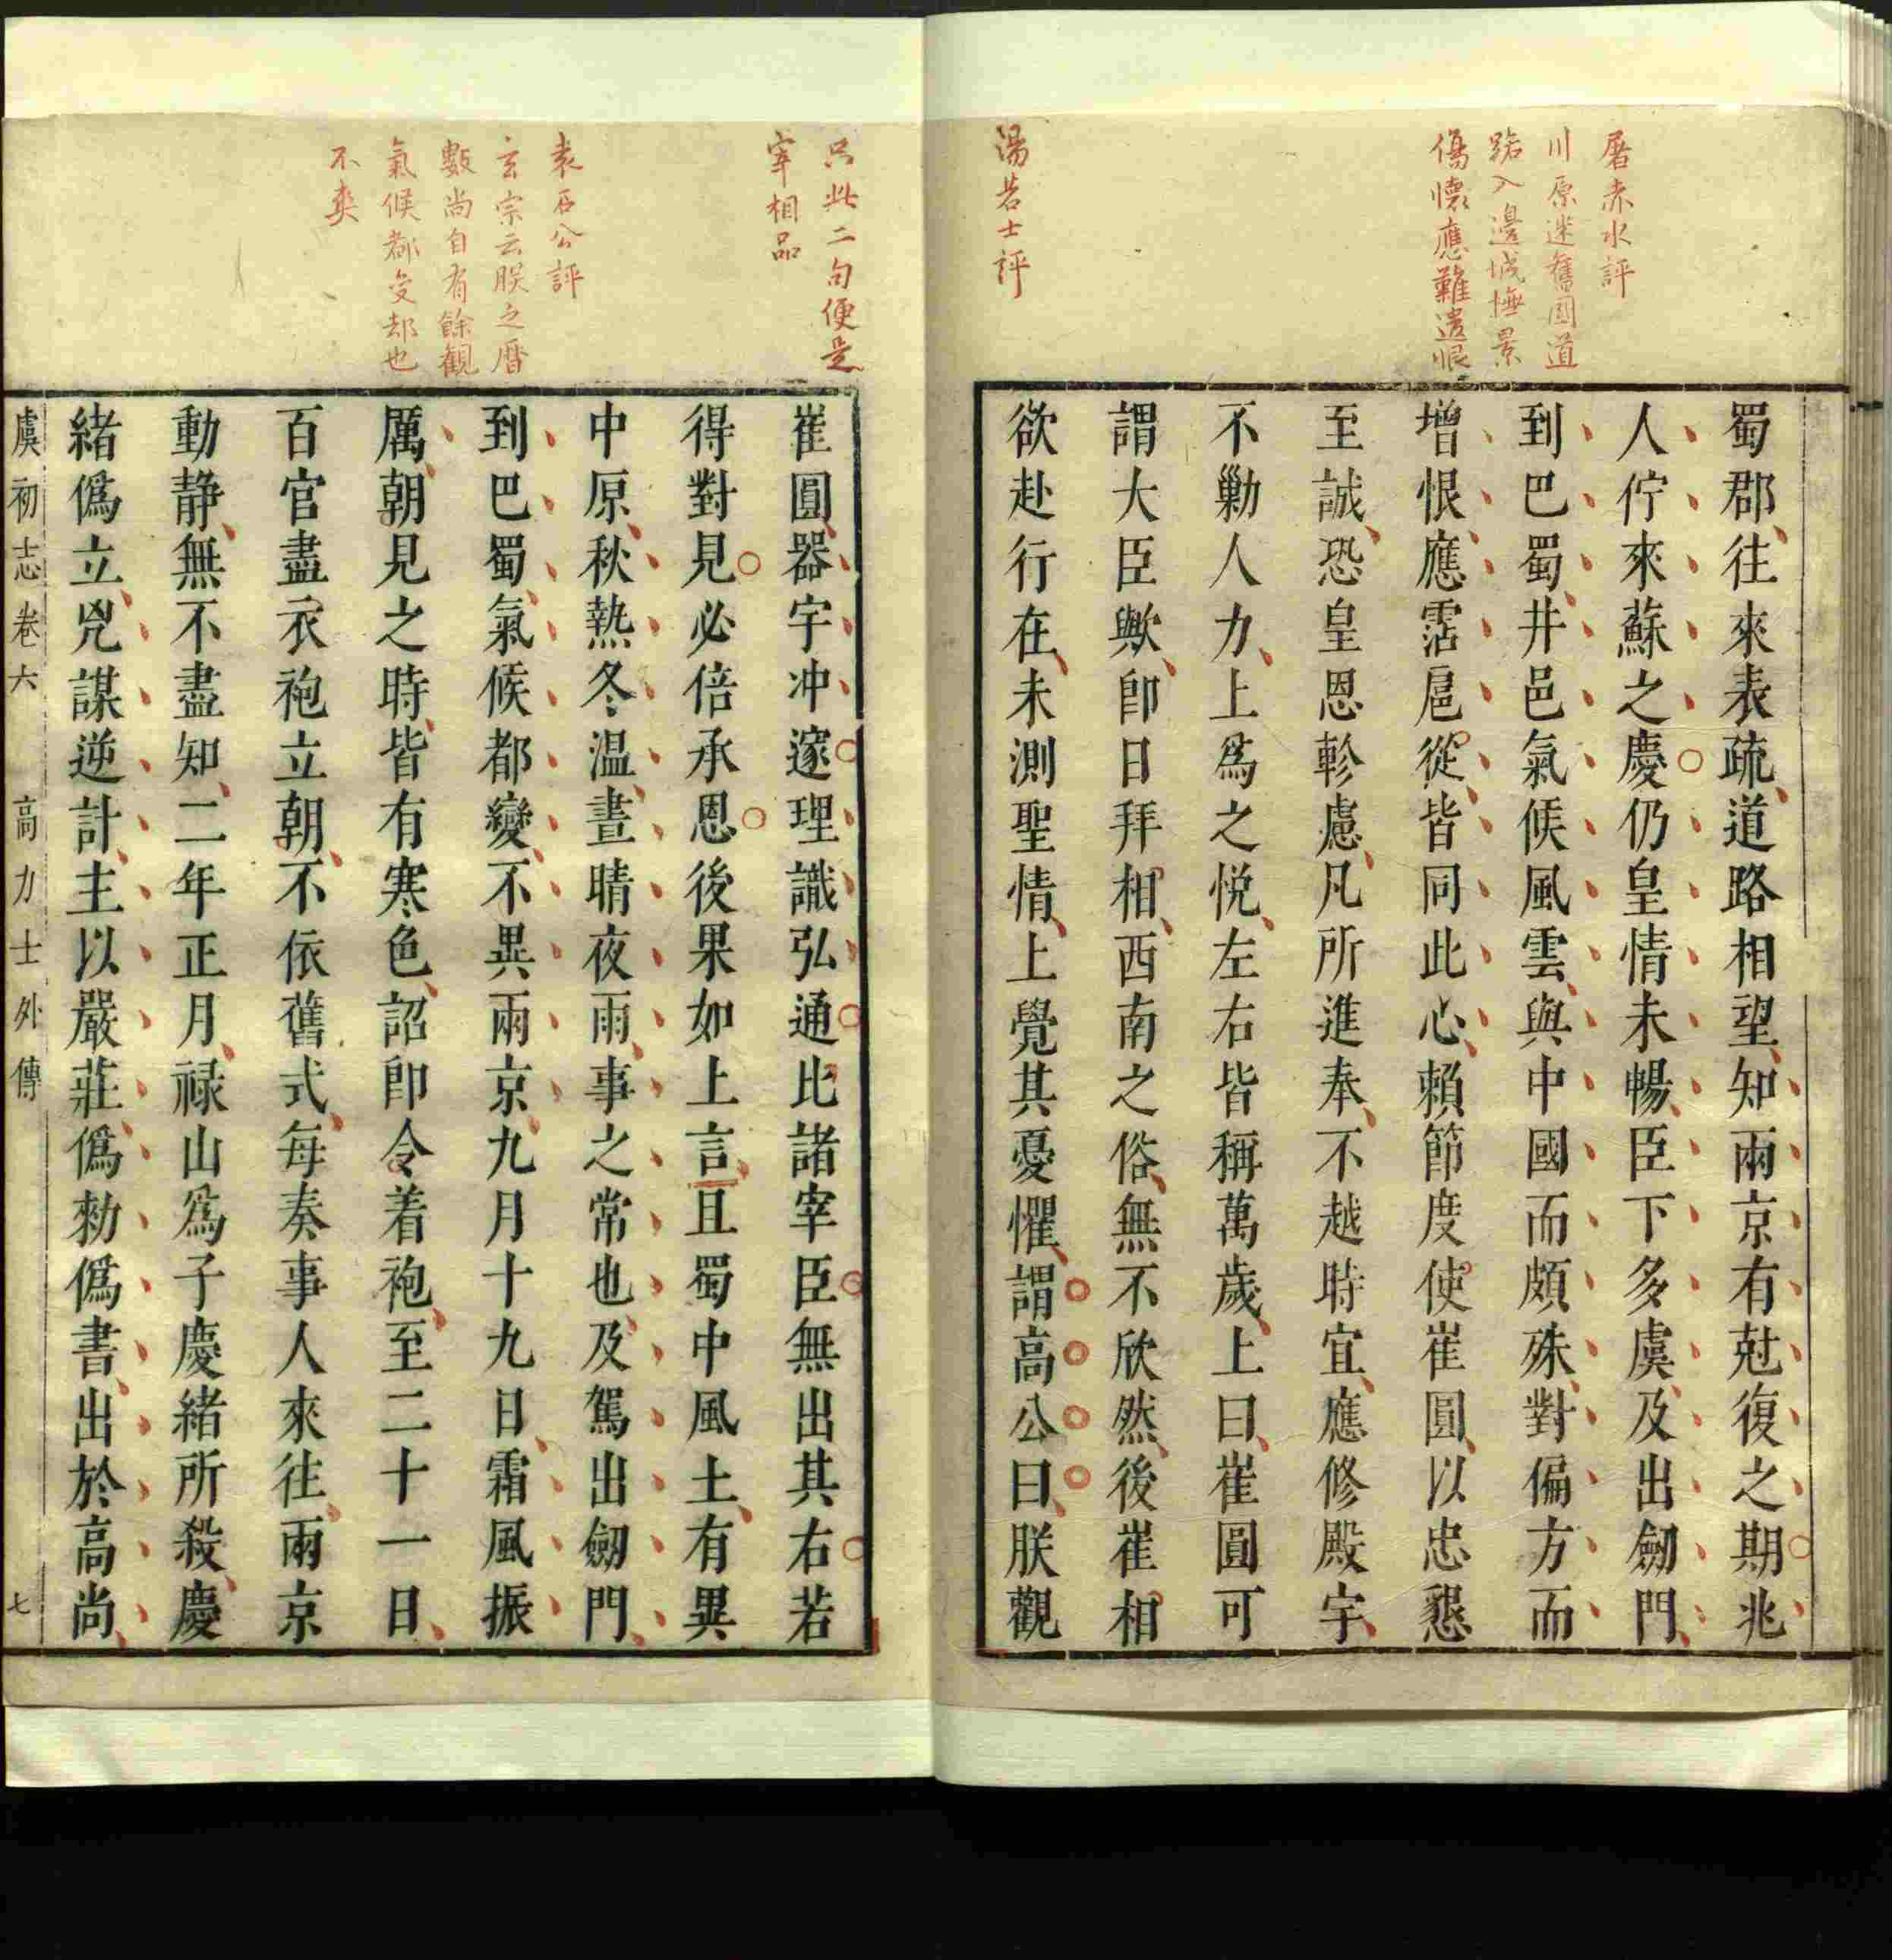 屠赤水評
川原迷舊國道
路入邊城撫景
傷懷應難遣恨
湯若士評
蜀郡往來表疏道路相望知兩京有尅復之期兆
人佇來蘇之慶仍皇情未暢臣下多虞及出劒門
到巴蜀井邑氣候風雲與中國而頗殊對偏方而
增恨應霑扈從皆同此心賴節度使崔圓以忠懇
至誠恐皇恩軫慮凡所進奉不越時宜應修殿宇
不勦人力上爲之悅左右皆稱萬歲上曰崔圓可
謂大臣歟卽日拜相西南之俗無不欣然後崔相
欲赴行在未測聖情上覺其憂懼謂高公曰朕觀
只此二句便是
宰相品
袁石公評
玄宗云朕之曆
數尚自有餘觀
氣候都變却也
不爽
崔圓器宇冲邃理識弘通比諸宰臣無出其右若
得對見必倍承恩後果如上言且蜀中風土有異
中原秋熱冬温晝晴夜雨事之常也及駕出劒門
到巴蜀氣候都變不異兩京九月十九日霜風振
厲朝見之時皆有寒色詔卽令着袍至二十一日
百官盡衣袍立朝不依舊式每奏事人來往兩京
動静無不盡知二年正月禄山爲子慶緒所殺慶
緒僞立兇謀逆計主以嚴莊僞勑僞書出於高尚
虞初志卷六 高力士外傳 七